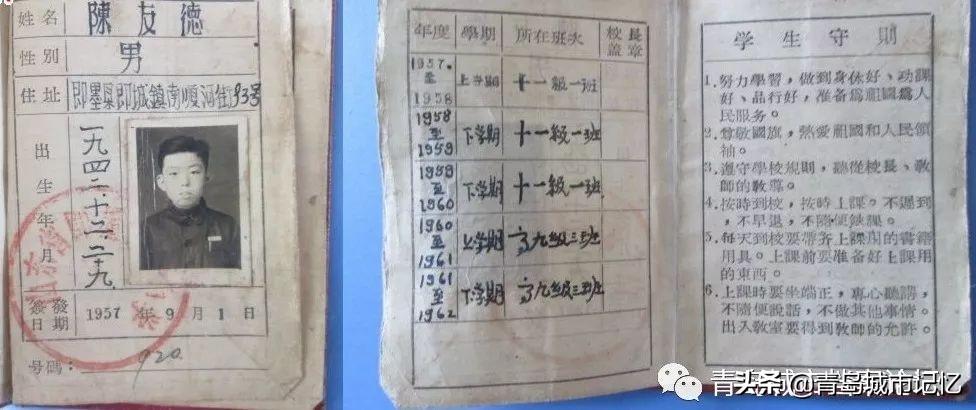 姓名 陳友德
性别 男
住址 即墨县即城鎮南順河街93号
出生年月 一九四二·十二·二十九
簽發日期 1957年9月1日
号碼: 920
年度 學期 所在班次 校長盖章
1957.至1958 上学期 十一級一班
1958至1959 下学期 十一級一班
1959至1960 下学期 十一級一班
1960至1961 上学期 高九级三班
1961至1962 下学期 高九级三班
學生守則
1.努力學習，做到身体好、功課
好、品行好，准备爲祖國爲人
民服务。
2.尊敬國旗，熱愛祖國和人民領
袖。
3.遵守學校規則，聽從校長、敎
師的敎導。
4.按時到校，按時上課。不遲到
，不早退，不隨便缺課。
5.每天到校要帶齐上課用的書籍
用具。上課前要准备好上課用
的東西。
6.上課時要坐端正，專心聽講，
不隨便說話，不做其他事情。
出入敎室要得到敎師的允許。
头条 @青岛城市记忆